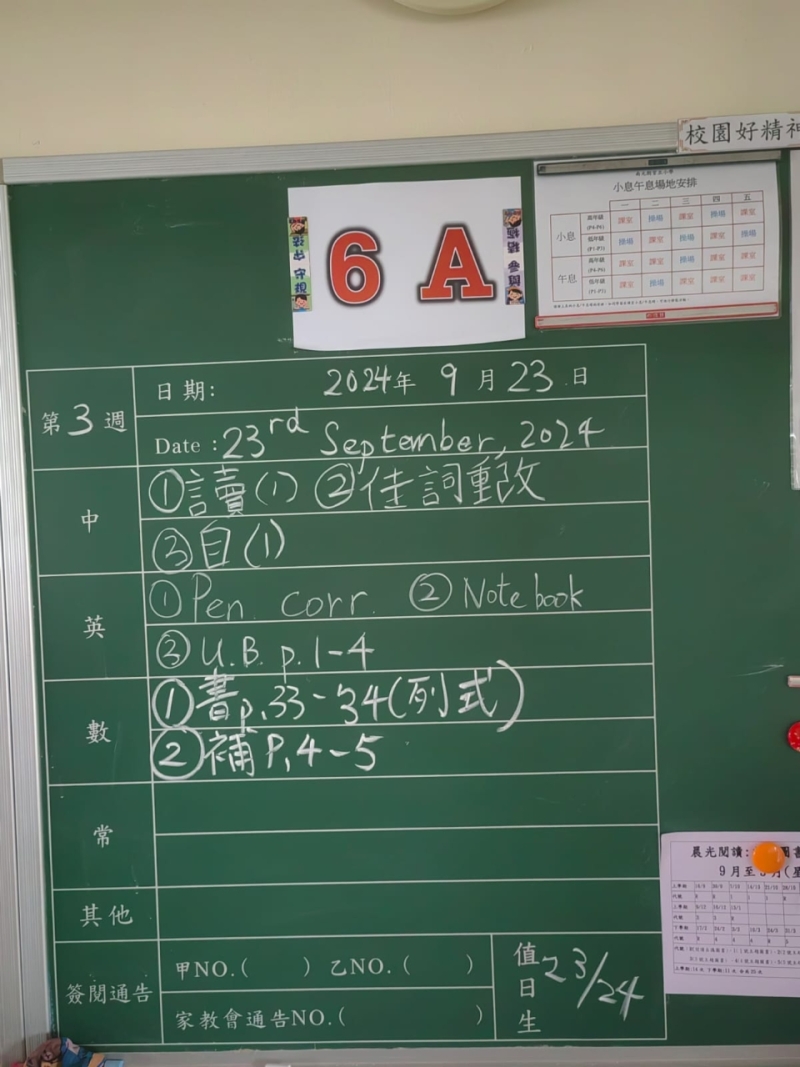 校園好精神
小息午息場地安排
一 二 三 四 五
小息
高年級 (P4-P6) 課室 操場 課室 操場 課室
低年級 (P1-P3) 操場 課室 操場 課室 操場
午息
高年級 (P4-P6) 課室 課室 課室 課室 課室
低年級 (P1-P3) 課室 操場 課室 操場 課室
6 A
守規
第 3 週
日期: 2024年 9 月 23 日
Date : 23rd September, 2024
中
①讀(1) ②佳詞重改
③自(1)
英
①Pen. corr. ②Notebook
③U.B. p.1-4
數
①書p.33-34(列式)
②補P.4-5
常
其他
簽閱通告
甲NO.( ) 乙NO.( )
家教會通告NO.( )
值日生 23/24
晨光閱讀:
9月至